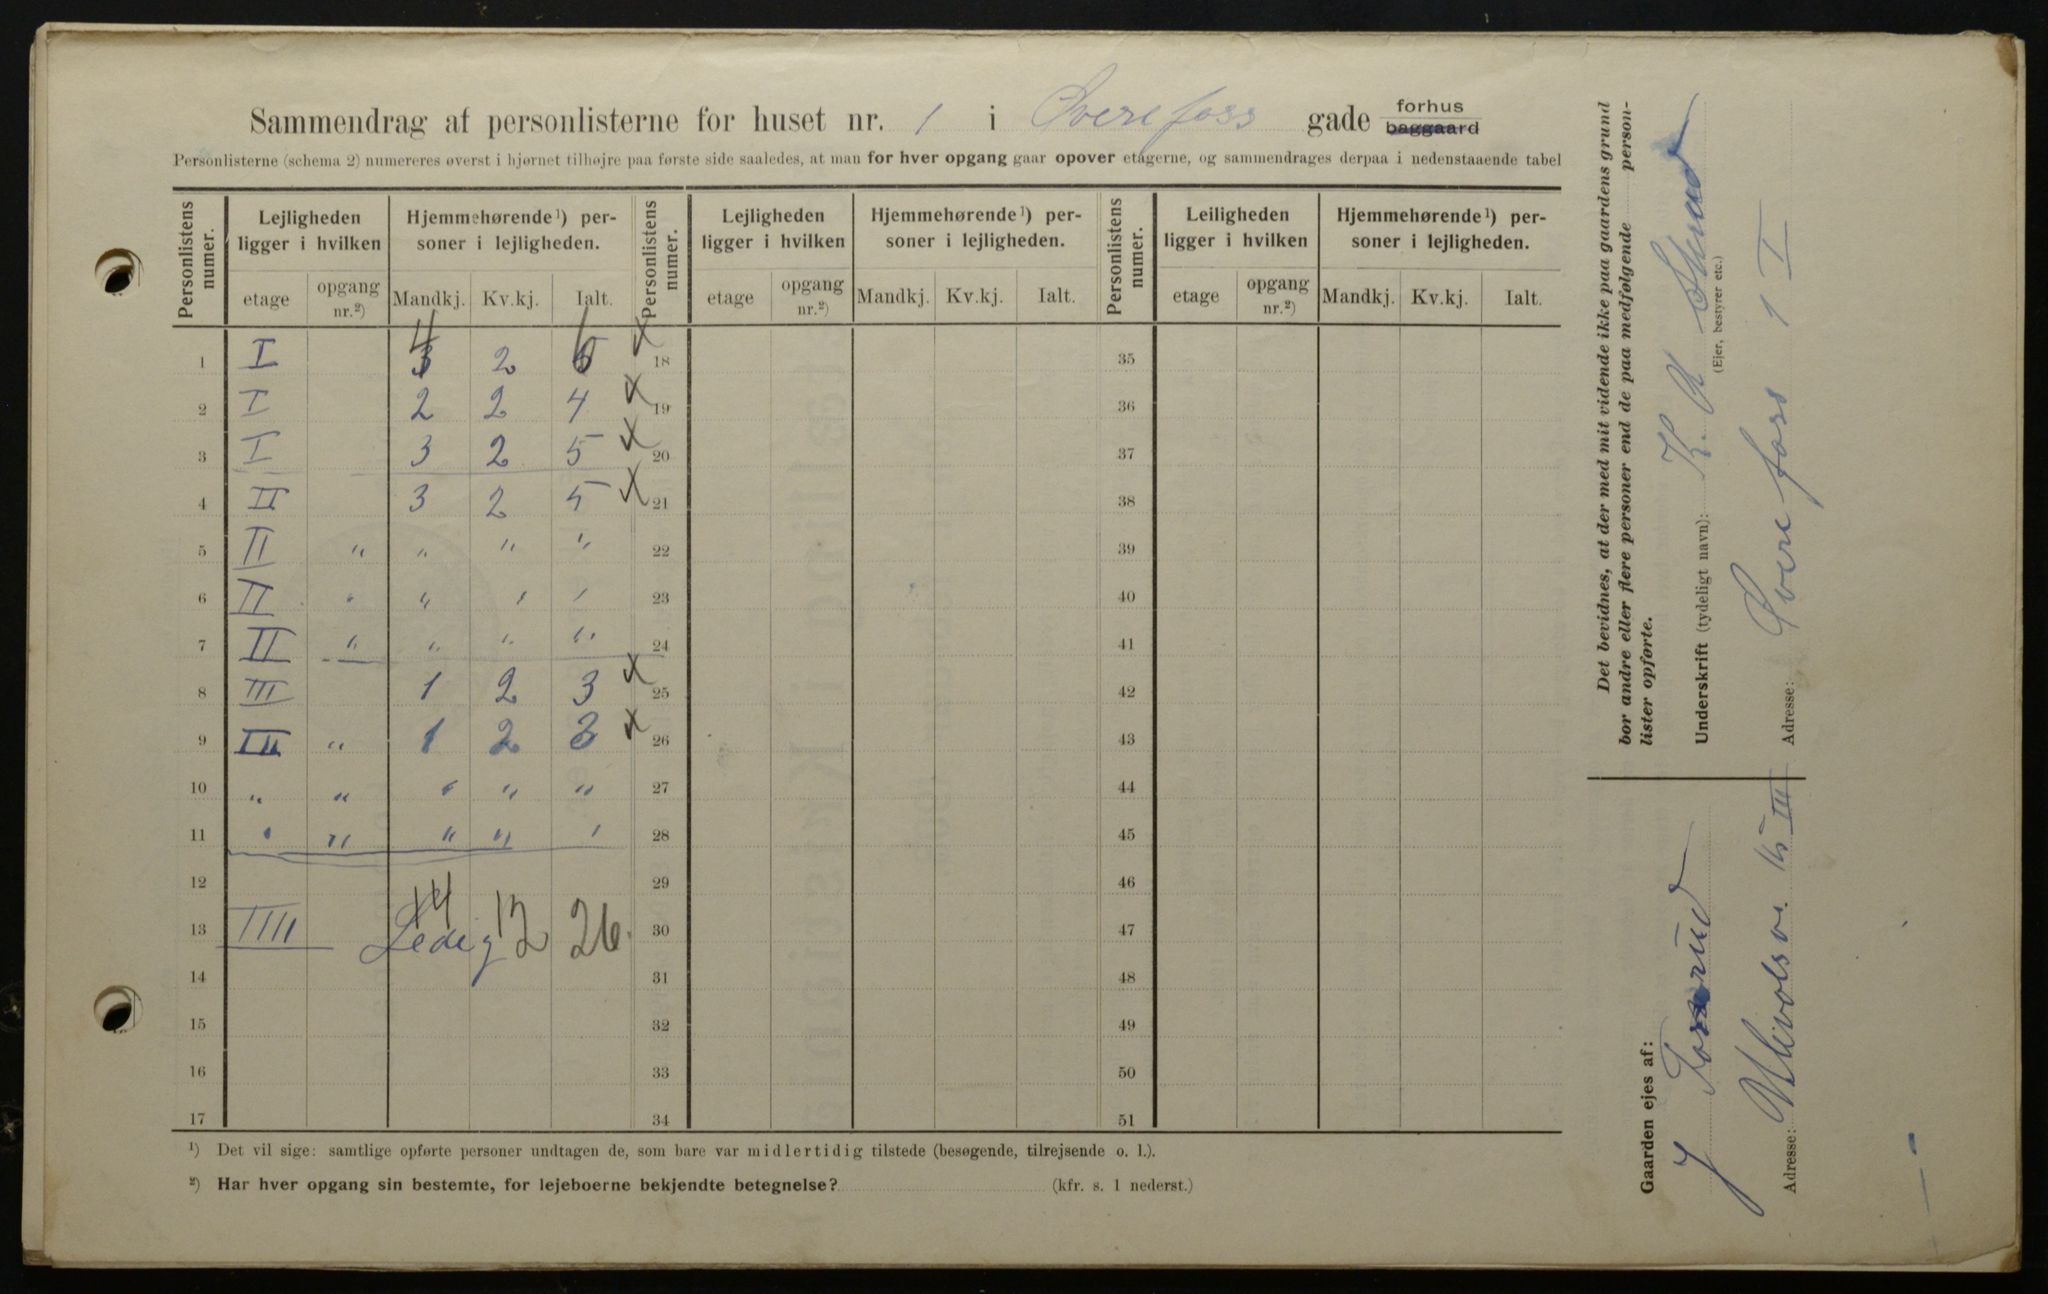 Sammendrag af personlisterne for huset nr. 1 i Øvre foss gade forhus baggaard
Personlisterne (schema 2) numereres øverst i hjørnet tilhøjre paa første side saaledes, at man for hver opgang gaar opover etagerne, og sammendrages derpaa i nedenstaaende tabel
Personlistens numer. Lejligheden ligger i hvilken Hjemmehørende¹) personer i lejligheden. Personlistens numer. Lejligheden ligger i hvilken Hjemmehørende¹) personer i lejligheden. Personlistens numer. Leiligheden ligger i hvilken Hjemmehørende¹) personer i lejligheden.
etage opgang nr.²) Mandkj. Kv.kj. Ialt. etage opgang nr.²) Mandkj. Kv.kj. Ialt. etage opgang nr.²) Mandkj. Kv.kj. Ialt.
1 I 4 2 6 x 18 35
2 I 2 2 4 x 19 36
3 I 3 2 5 x 20 37
4 II 3 2 5 x 21 38
5 II " " " " 22 39
6 II " " " " 23 40
7 II " " " " 24 41
8 III 1 2 3 x 25 42
9 III " 1 2 3 x 26 43
10 " " " " " 27 44
11 " " " " " 28 45
12 29 46
13 IIII Ledig 14 12 26. 30 47
14 31 48
15 32 49
16 33 50
17 34 51
¹) Det vil sige: samtlige opførte personer undtagen de, som bare var midlertidig tilstede (besøgende, tilrejsende o. l.).
²) Har hver opgang sin bestemte, for lejeboerne bekjendte betegnelse? (kfr. s. 1 nederst.)
Det bevidnes, at der med mit vidende ikke paa gaardens grund
bor andre eller flere personer end de paa medfølgende personlister opførte.
Underskrift (tydeligt navn): K. A
(Ejer, bestyrer etc.)
Adresse: Øvre foss 1 I
Gaarden ejes af:
J
Adresse: III